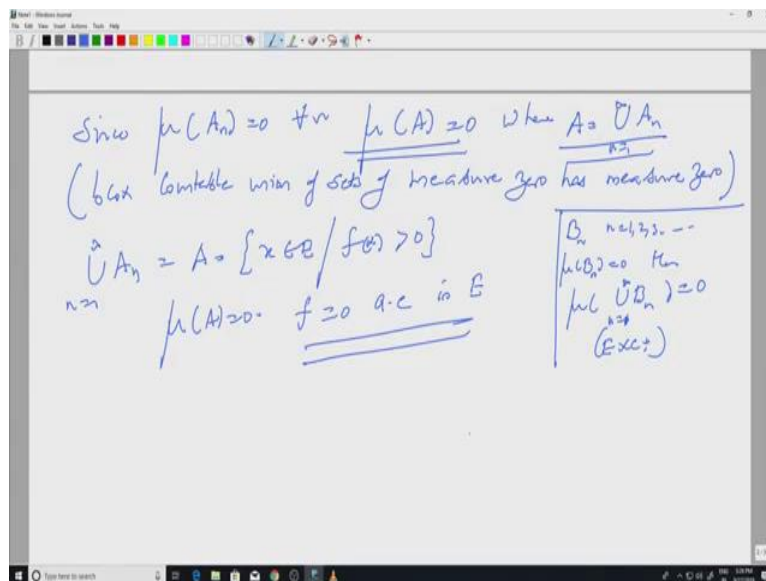 Note1 - Windows Journal
File Edit View Insert Actions Tools Help
Since μ(An) = 0 ∀n μ(A) = 0 where A = ∪ An
n=1
(bcoz Countable union of sets of measure zero has measure zero)
∪ An = A = {x ∈ E / f(x) > 0}
n=1
μ(A) = 0. f = 0 a.e in E
Bn n=1,2,3,...
μ(Bn) = 0 then
μ(∪ Bn) = 0
n=1
(Exc:)
Type here to search